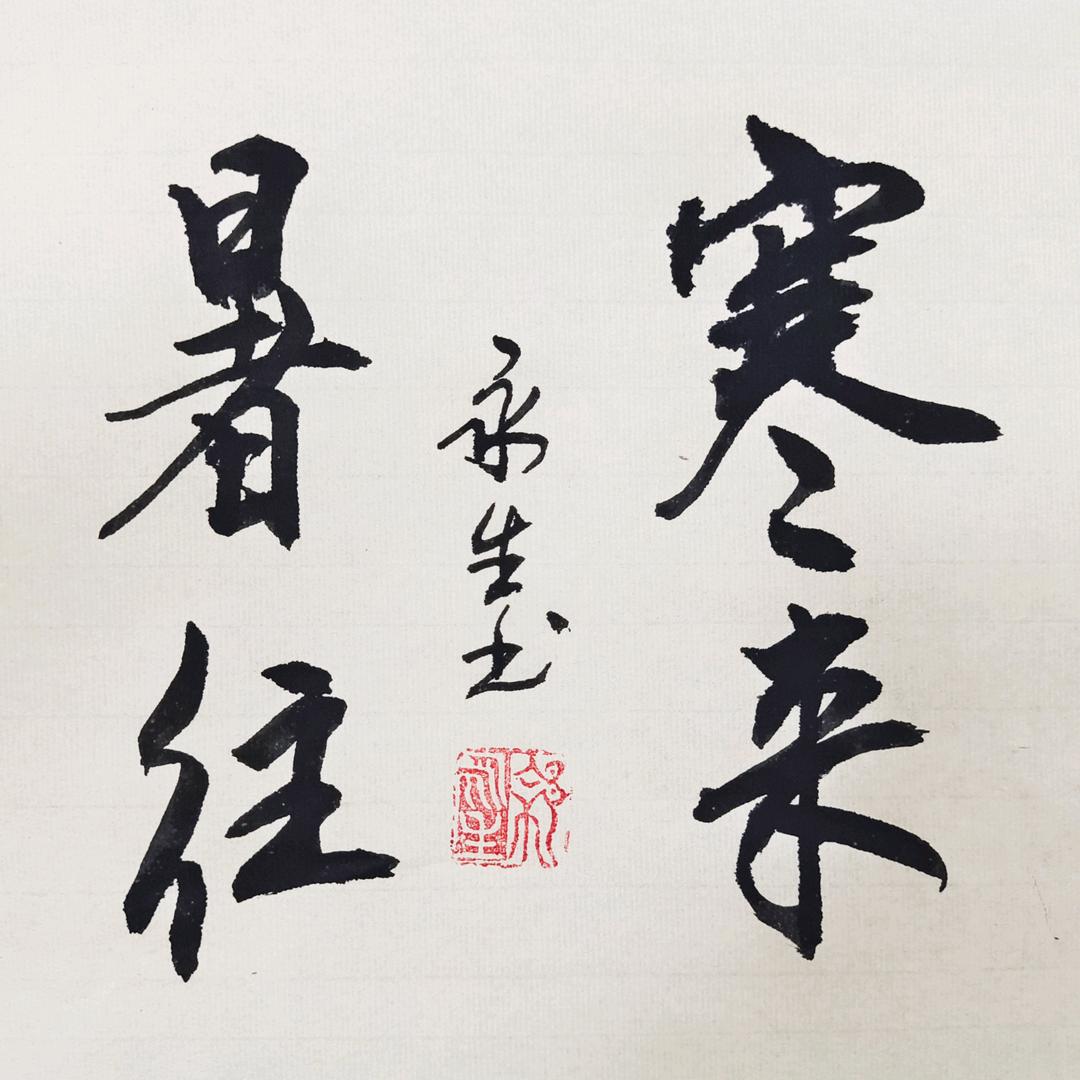 寒来
暑往
永生书